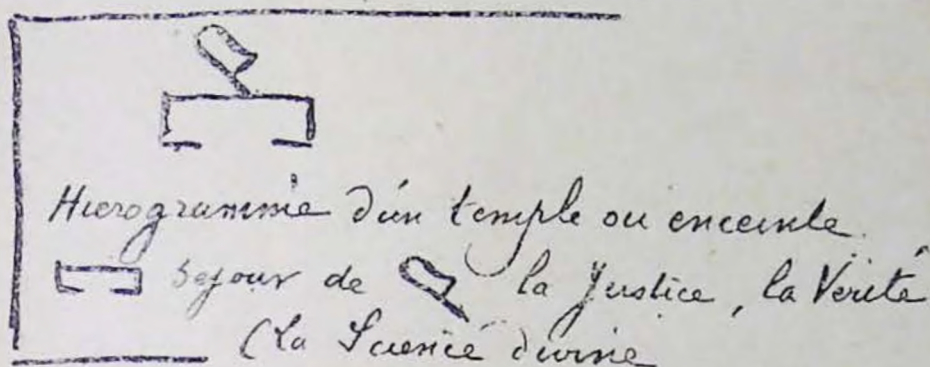 Hierogramme d'un temple ou enceinte
séjour de la Justice, la Vérité
(La Science divine